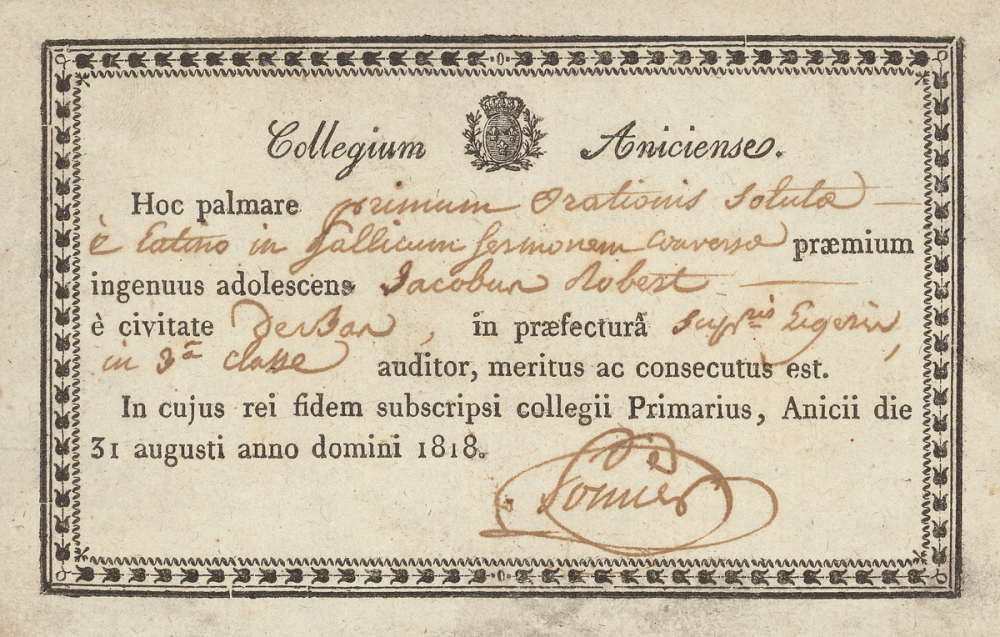 Collegium Aniciense.
Hoc palmare primum Orationis Solutæ
è Latino in Gallicum Sermonem conversæ præmium
ingenuus adolescens Jacobus Robert
è civitate , in præfecturâ Sup.ris Ligeris,
in 3.a classe auditor, meritus ac consecutus est.
In cujus rei fidem subscripsi collegii Primarius, Anicii die
31 augusti anno domini 1818.